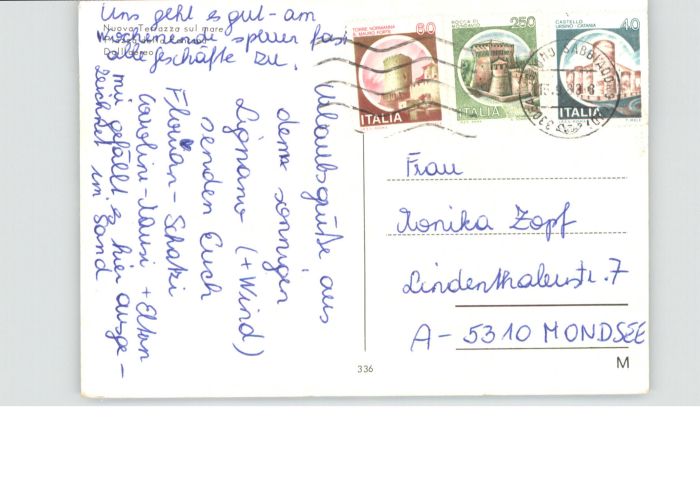 Uns geht es gut - am
Wochenende sperren fast
alle Geschäfte zu.
Nuova Terrazza sul mare
Dall'aereo
Urlaubsgrüße aus
dem sonnigen
Lignano (+ Wind)
senden Euch
Florian - Schatzi
Caroline - Mausi + Eltern
mir gefällt es hier ausge-
zeichnet im Sand
TORRE NORMANNA
S. MAURO FORTE
60
ITALIA
ROCCA DI
MONDAVIO
250
ITALIA
CASTELLO
URSINO - CATANIA
40
ITALIA
LIGNANO SABBIADORO
Frau
Monika Zopf
Lindenthalerstr. 7
A - 5310 MONDSEE
336
M